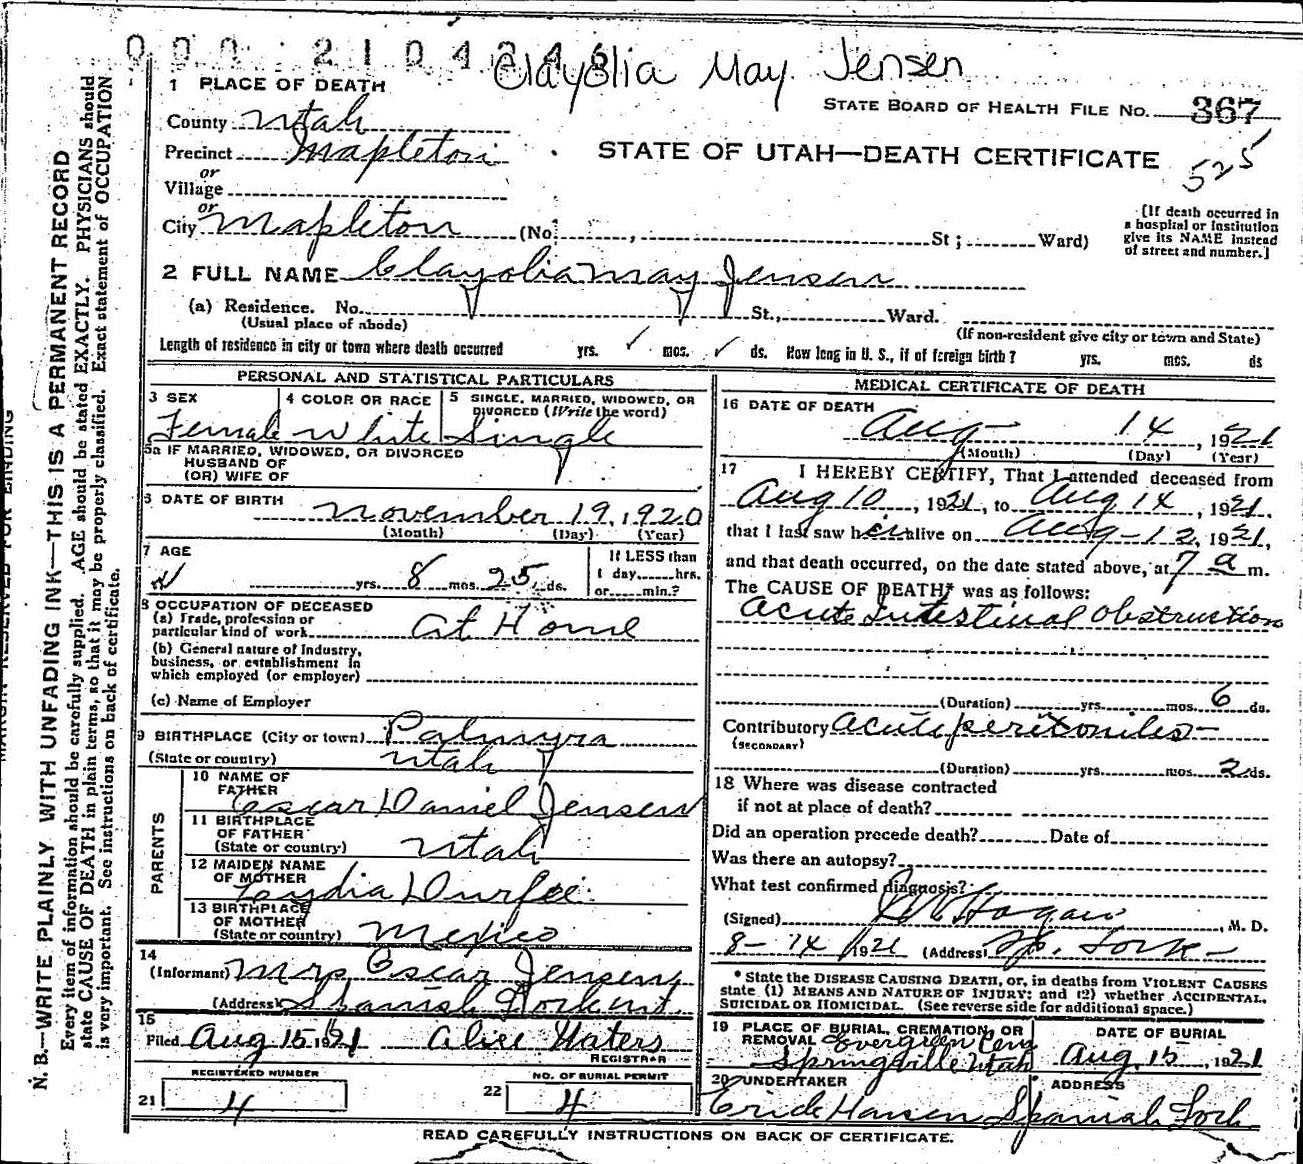 000 2104246 Clayolia May Jensen
1 PLACE OF DEATH
STATE BOARD OF HEALTH FILE NO. 367
County Utah
Precinct Mapleton
STATE OF UTAH—DEATH CERTIFICATE
525
or
Village
or
City Mapleton (No. , St; Ward)
[If death occurred in
a hospital or institution
give its NAME instead
of street and number.]
2 FULL NAME Clayolia May Jensen
(a) Residence. No. St., Ward.
(Usual place of abode)
(If non-resident give city or town and State)
Length of residence in city or town where death occurred yrs. ✓ mos. ✓ ds. How long in U. S., if of foreign birth? yrs. mos. ds
PERSONAL AND STATISTICAL PARTICULARS
3 SEX 4 COLOR OR RACE 5 SINGLE, MARRIED, WIDOWED, OR
DIVORCED (Write the word)
Female White Single
5a IF MARRIED, WIDOWED, OR DIVORCED
HUSBAND OF
(OR) WIFE OF
6 DATE OF BIRTH
November 19, 1920
(Month) (Day) (Year)
7 AGE
yrs. 8 mos. 25 ds.
If LESS than
1 day hrs.
or min.?
8 OCCUPATION OF DECEASED
(a) Trade, profession or
particular kind of work At Home
(b) General nature of Industry,
business, or establishment in
which employed (or employer)
(c) Name of Employer
9 BIRTHPLACE (City or town) Palmyra
(State or country) Utah
PARENTS
10 NAME OF
FATHER Oscar Daniel Jensen
11 BIRTHPLACE
OF FATHER
(State or country) Utah
12 MAIDEN NAME
OF MOTHER Lydia Durfee
13 BIRTHPLACE
OF MOTHER
(State or country) Mexico
14
(Informant) Mrs Oscar Jensen
(Address) Spanish Fork Ut.
15
Filed Aug 15 1921 Alice Waters
REGISTRAR
REGISTERED NUMBER
21 4
NO. OF BURIAL PERMIT
22 4
MEDICAL CERTIFICATE OF DEATH
16 DATE OF DEATH
Aug 14, 1921
(Month) (Day) (Year)
17 I HEREBY CERTIFY, That I attended deceased from
Aug 10, 1921, to Aug 14, 1921.
that I last saw her alive on Aug-12, 1921,
and that death occurred, on the date stated above, at 7 a m.
The CAUSE OF DEATH* was as follows:
Acute Intestinal Obstruction
(Duration) yrs. mos. 6 ds.
Contributory Acute peritonites-
(SECONDARY)
(Duration) yrs. mos. 2 ds.
18 Where was disease contracted
if not at place of death?
Did an operation precede death? Date of
Was there an autopsy?
What test confirmed diagnosis?
(Signed) Hagan, M. D.
8-14 1921 (Address) Sp. Fork-
* State the DISEASE CAUSING DEATH, or, in deaths from VIOLENT CAUSES
state (1) MEANS AND NATURE OF INJURY; and (2) whether ACCIDENTAL,
SUICIDAL OR HOMICIDAL. (See reverse side for additional space.)
19 PLACE OF BURIAL, CREMATION, OR
REMOVAL Evergreen Cem
Springville Utah
DATE OF BURIAL
Aug. 15, 1921
20 UNDERTAKER
ADDRESS
Erick Hansen Spanish Fork
READ CAREFULLY INSTRUCTIONS ON BACK OF CERTIFICATE.
MARGIN RESERVED FOR BINDING
N. B.—WRITE PLAINLY WITH UNFADING INK—THIS IS A PERMANENT RECORD
Every item of information should be carefully supplied. AGE should be stated EXACTLY. PHYSICIANS should
state CAUSE OF DEATH in plain terms, so that it may be properly classified. Exact statement of OCCUPATION
is very important. See instructions on back of certificate.